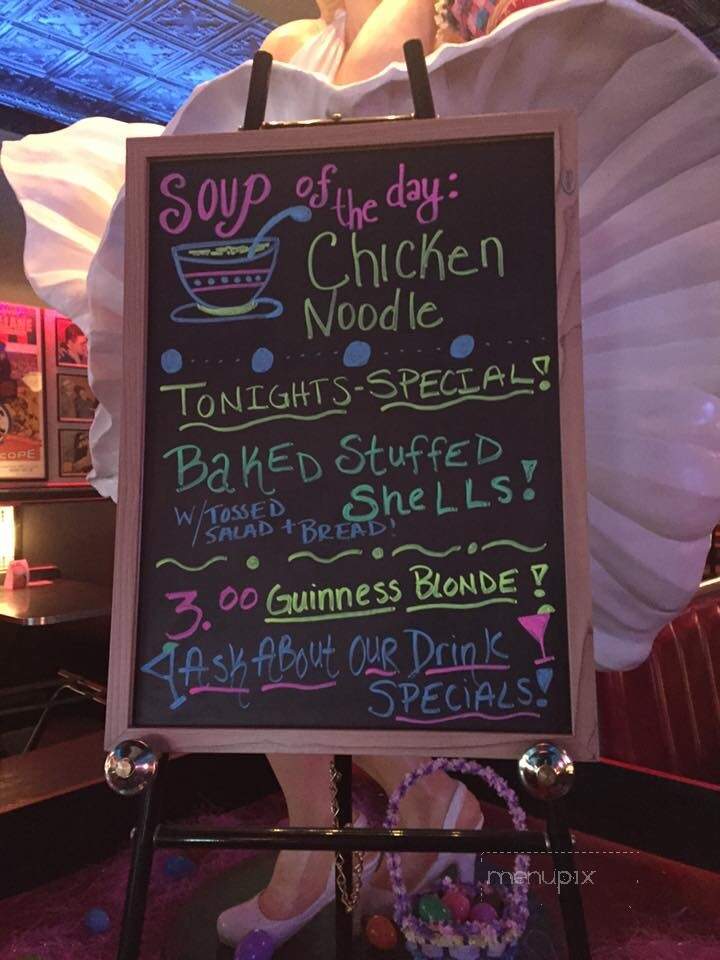 Soup of the day:
Chicken
Noodle
TONIGHTS-SPECIAL!
BAKED STUFFED
SHELLS!
W/TOSSED
SALAD + BREAD!
3.00 Guinness BLONDE!
ASK ABOUT OUR Drink
SPECIALS!
COPE
menupix